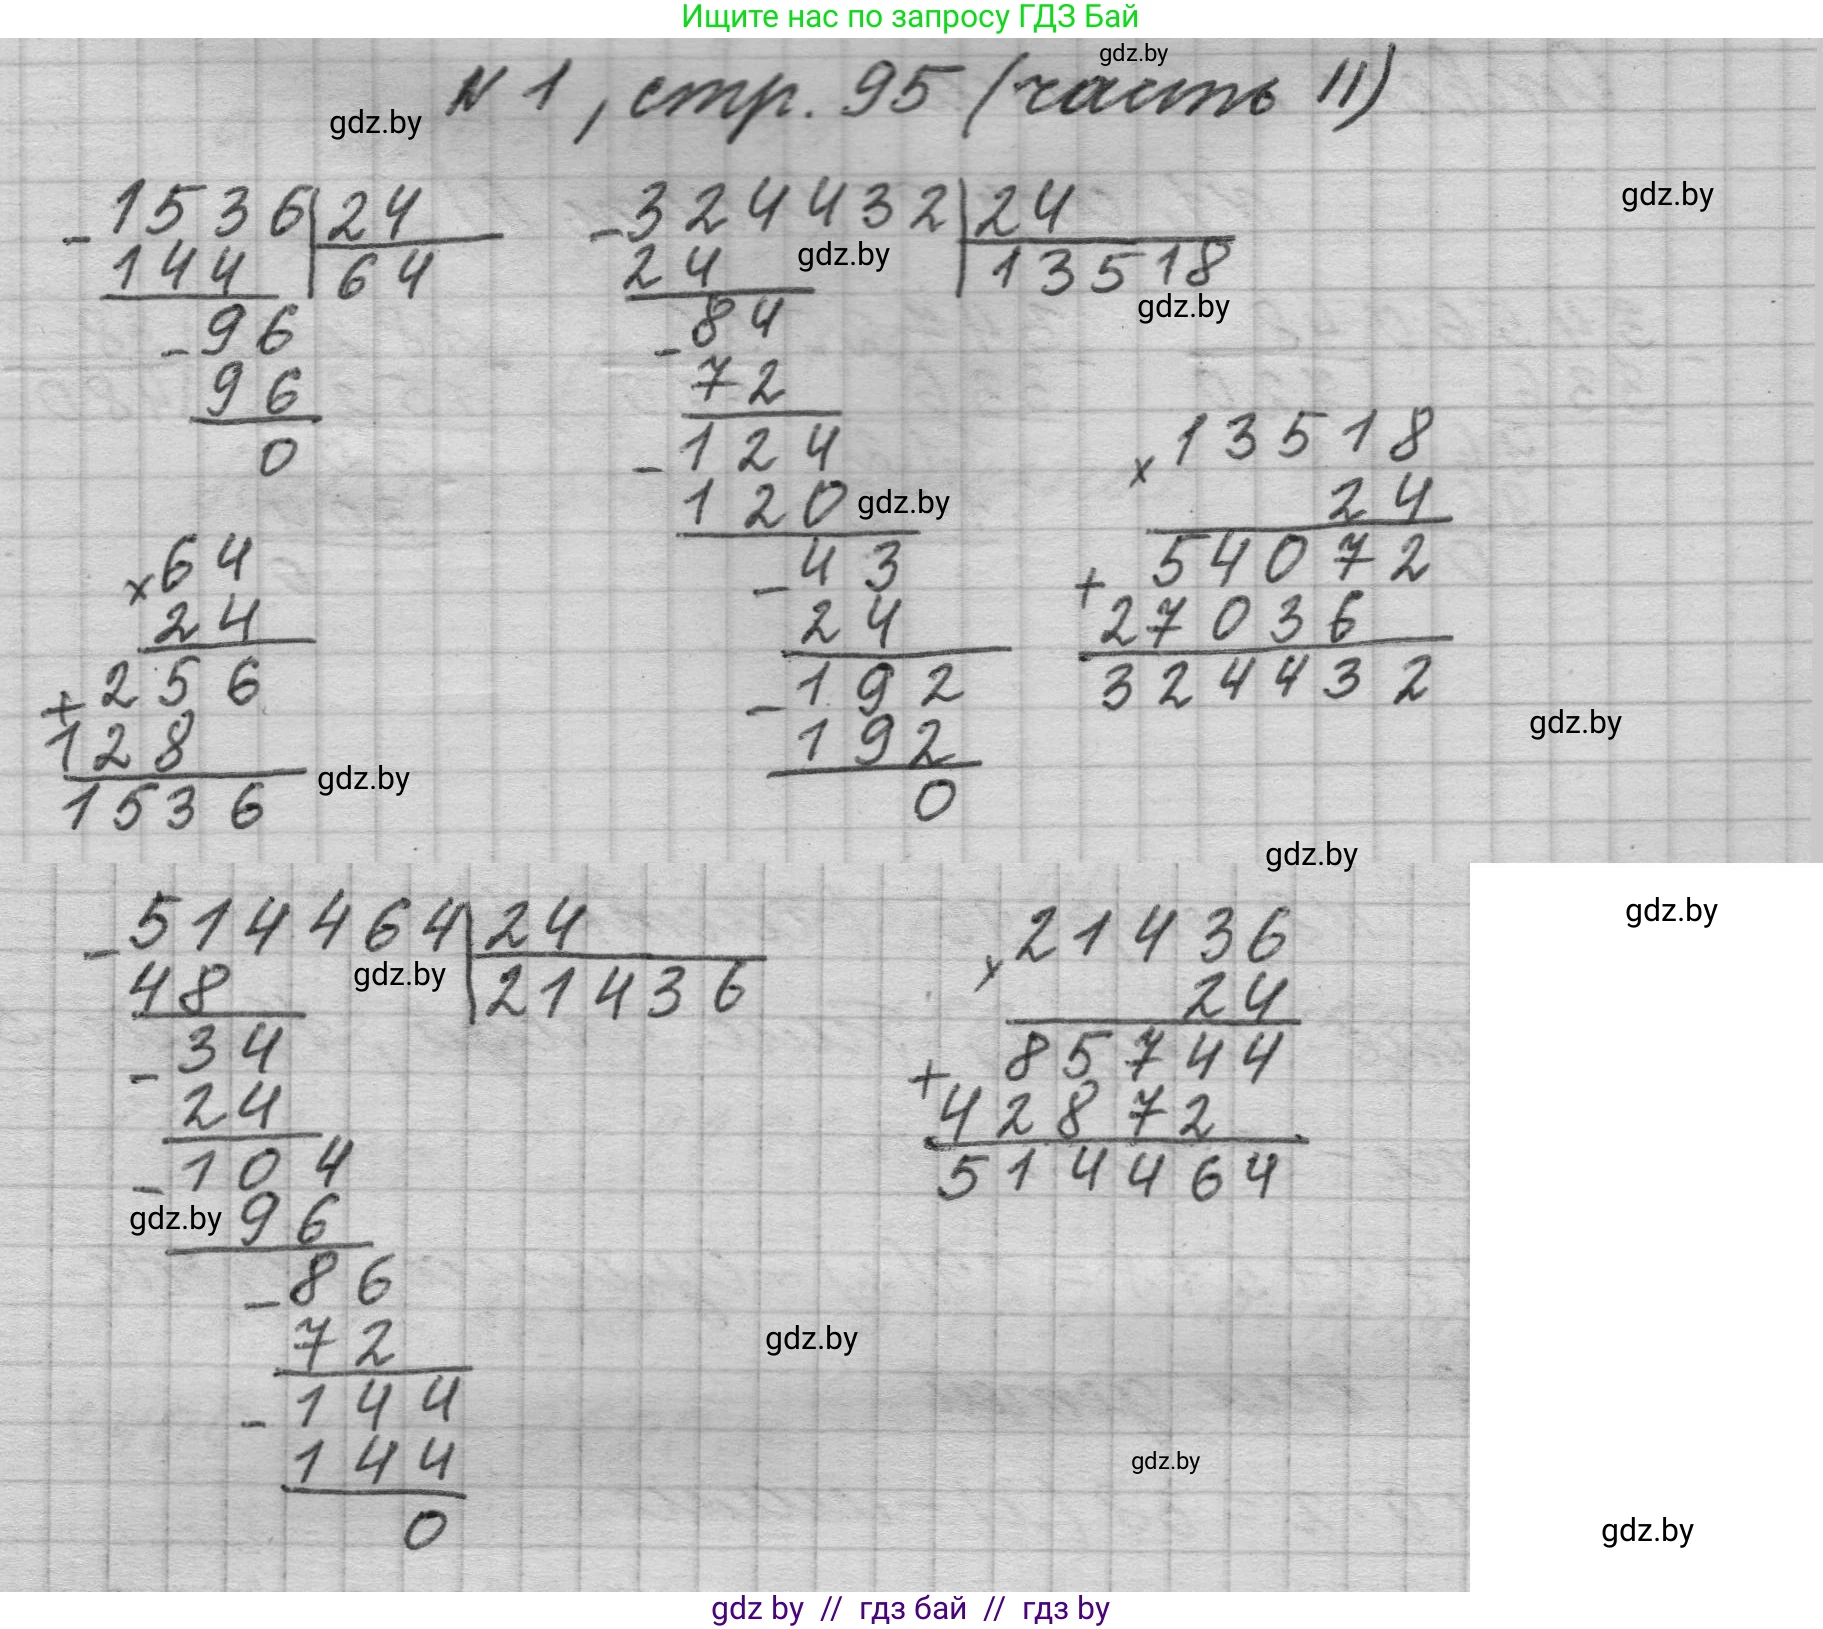 Ищите нас по запросу ГДЗ Бай
gdz.by
N 1, стр. 95 (часть II)
gdz.by
- 1536 | 24
144 | 64
- 96
96
0
× 64
24
+ 256
128
1536
gdz.by
- 324432 | 24
24 | 13518
gdz.by
gdz.by
- 84
72
- 124
120
gdz.by
- 43
24
- 192
192
0
gdz.by
× 13518
24
+ 54072
27036
324432
gdz.by
gdz.by
- 514464 | 24
48 | 21436
gdz.by
- 34
24
- 104
gdz.by 96
- 86
72
- 144
144
0
× 21436
24
+ 85744
42872
514464
gdz.by
gdz.by
gdz.by
gdz.by
gdz by // гдз бай // гдз by